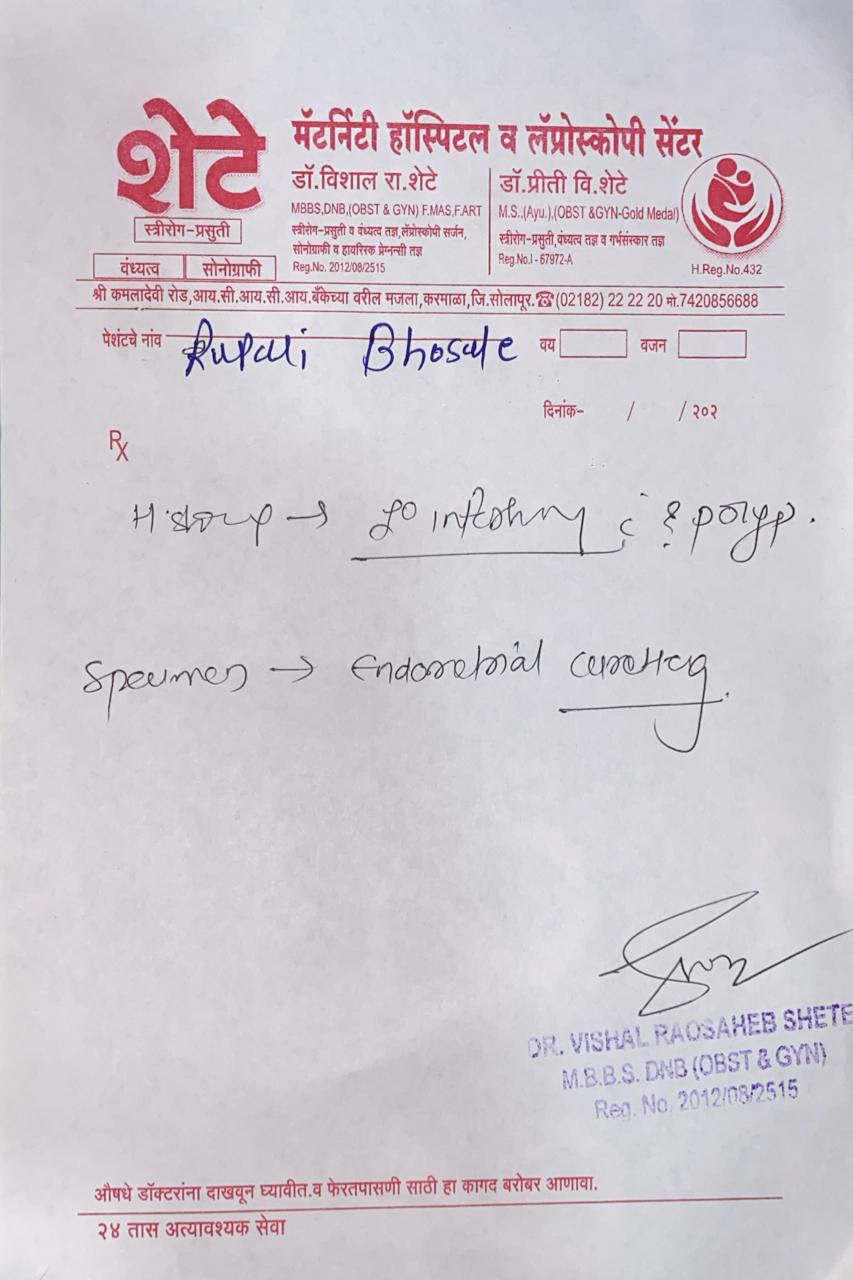 शेटे
स्त्रीरोग-प्रसुती
वंध्यत्व सोनोग्राफी
मॅटर्निटी हॉस्पिटल व लॅप्रोस्कोपी सेंटर
डॉ.विशाल रा.शेटे
MBBS,DNB,(OBST & GYN) F.MAS,F.ART
स्त्रीरोग-प्रसुती व वंध्यत्व तज्ञ,लॅप्रोस्कोपी सर्जन,
सोनोग्राफी व हायरिस्क प्रेग्नन्सी तज्ञ
Reg.No. 2012/08/2515
डॉ.प्रीती वि.शेटे
M.S.,(Ayu.),(OBST &GYN-Gold Medal)
स्त्रीरोग-प्रसुती,वंध्यत्व तज्ञ व गर्भसंस्कार तज्ञ
Reg.No.I - 67972-A
H.Reg.No.432
श्री कमलादेवी रोड,आय.सी.आय.सी.आय.बँकेच्या वरील मजला,करमाळा,जि.सोलापूर.☎(02182) 22 22 20 मो.7420856688
पेशंटचे नांव Rupali Bhosale वय वजन
दिनांक- / / २०२
Rx
History → polyp.
Specimen → Endometrial
DR. VISHAL RAOSAHEB SHETE
M.B.B.S. DNB (OBST & GYN)
Reg. No. 2012/08/2515
औषधे डॉक्टरांना दाखवून घ्यावीत.व फेरतपासणी साठी हा कागद बरोबर आणावा.
२४ तास अत्यावश्यक सेवा